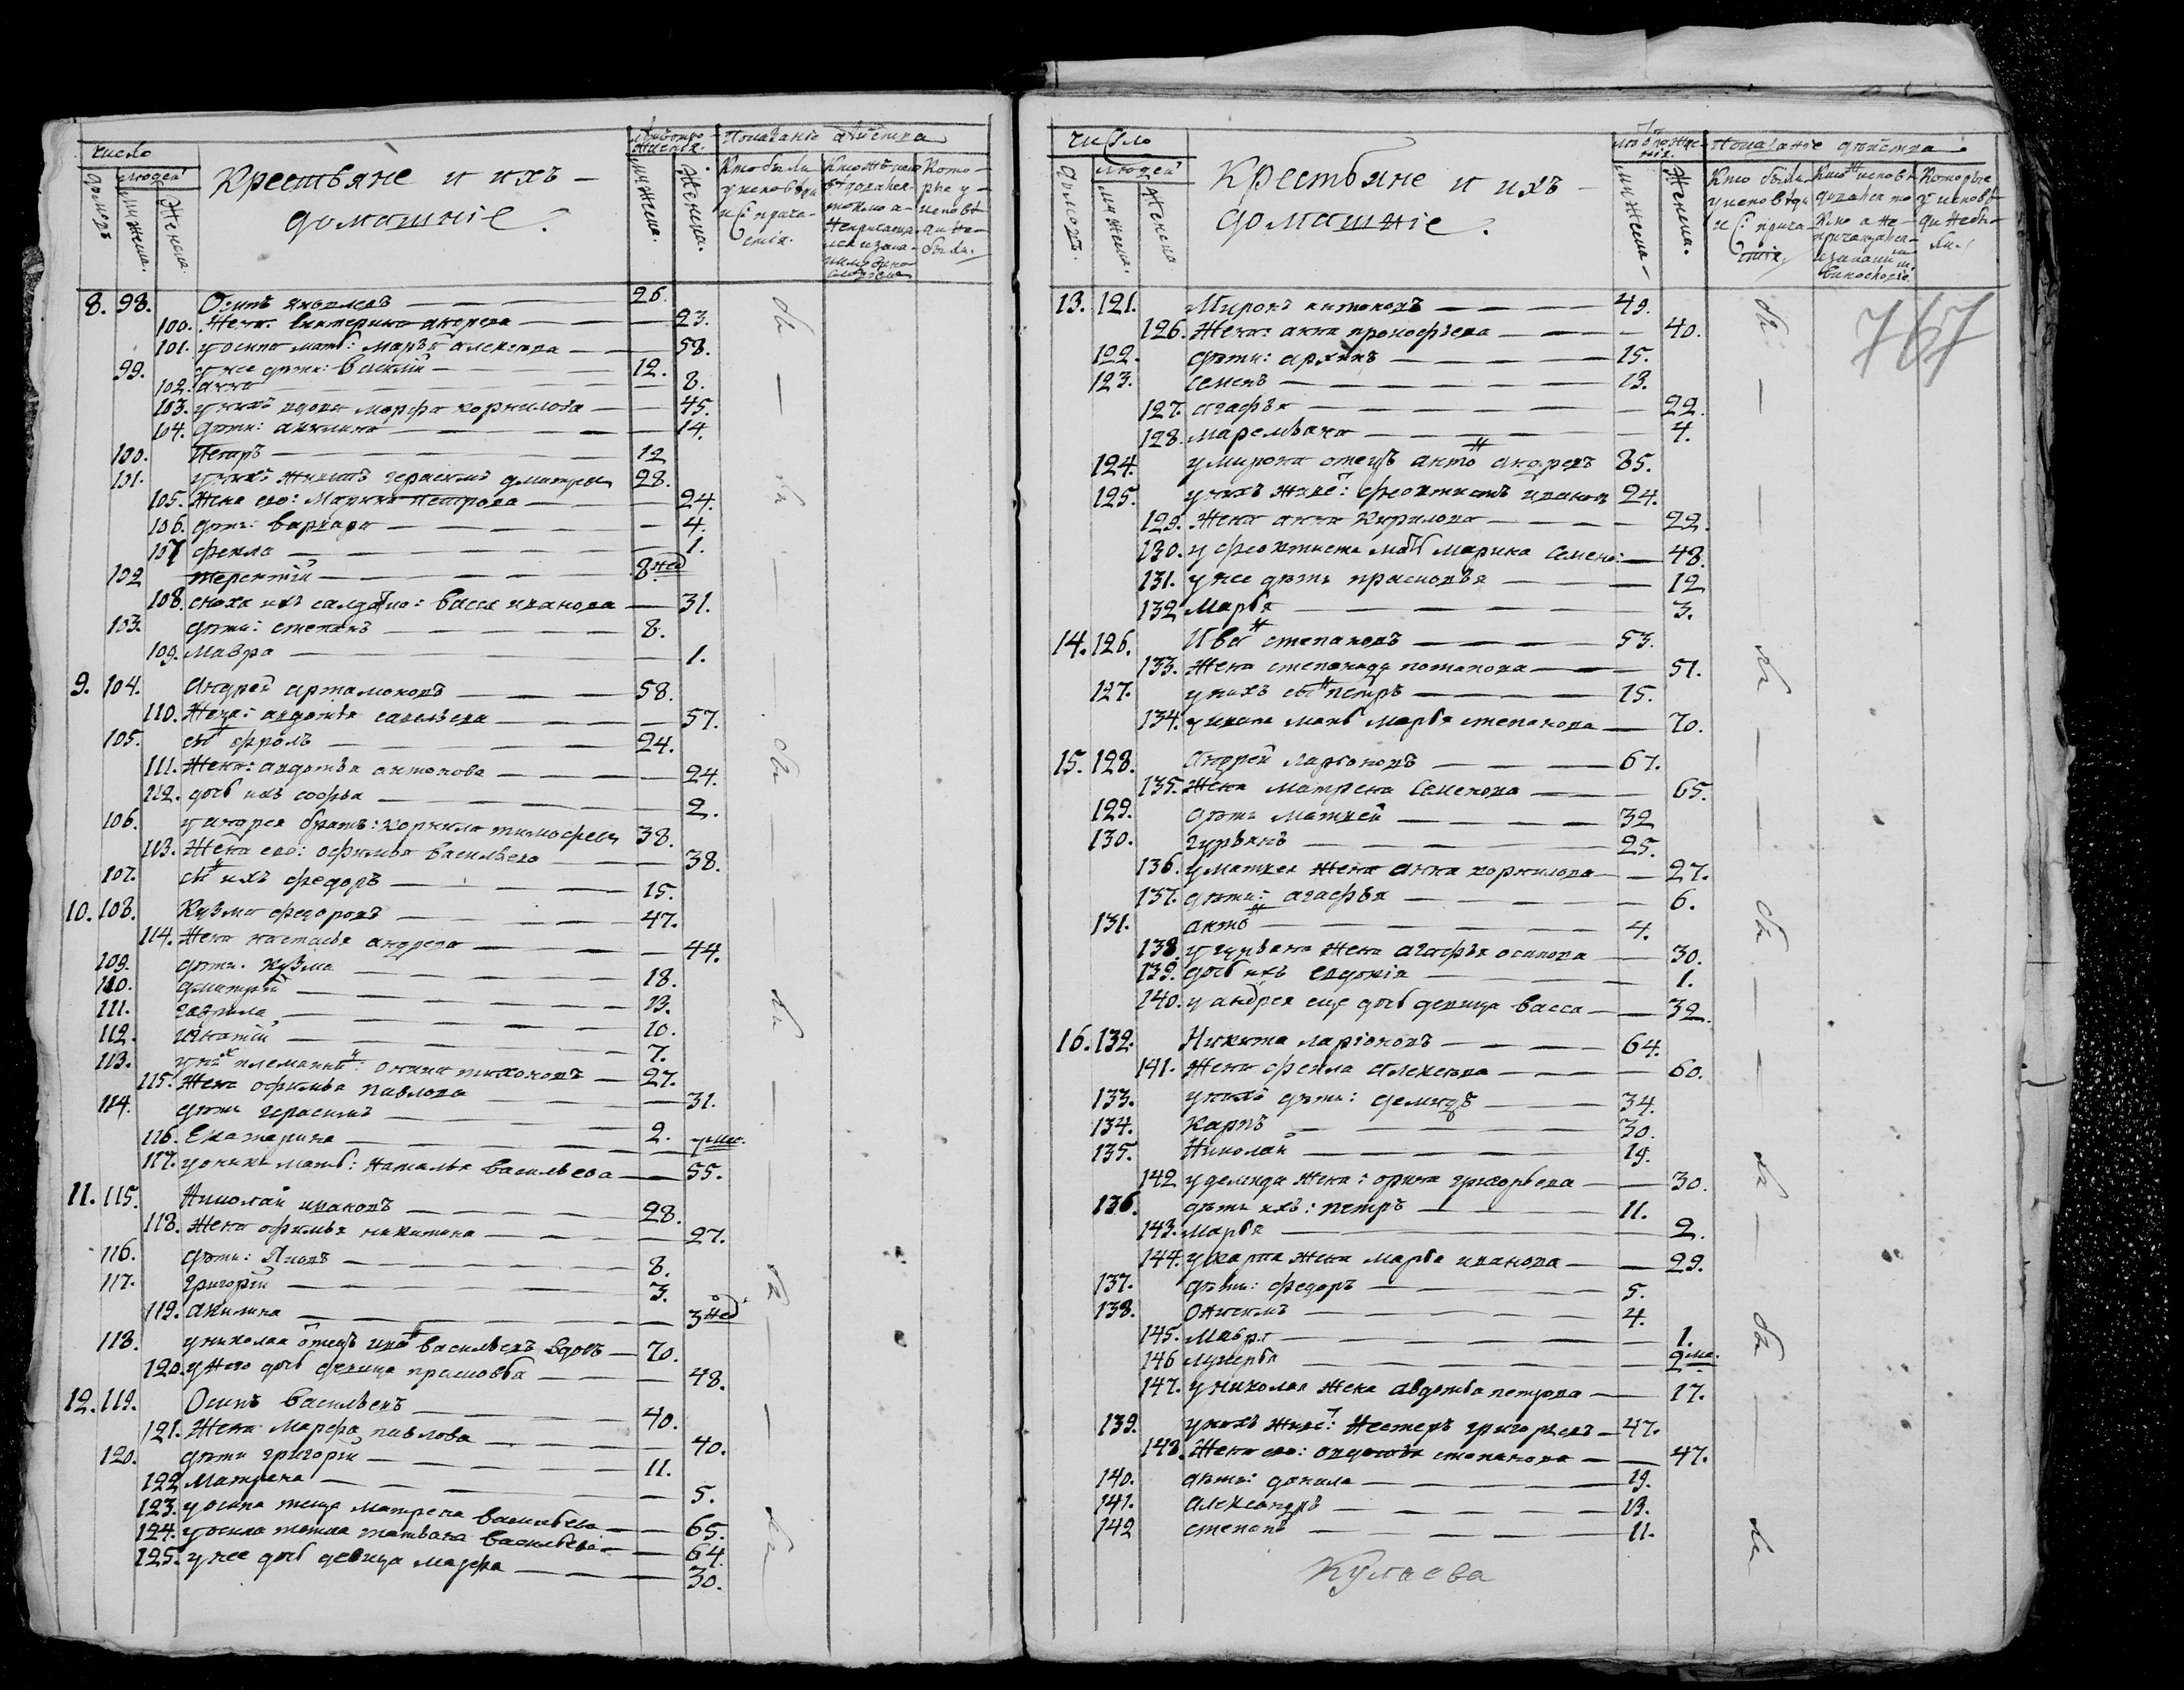 число
людей
домовъ
мужеска.
женска.
Крестьяне и ихъ
домашніе.
мужеска.
женска.
Показаніе действа
Кто были
у исповѣди
и С: прича-
стія.
Кото-
рые у
исповѣ-
ди не
были.
8. 98. Осипъ яковлевъ 26.
100. жена: Екатерина андреева 23.
101. у осипа мать: марья алексеева 58.
99. у нее дети: Василій 12.
102. анна 8.
103. у нихъ вдова марфа корнилова 45.
104. дети: акилина 14.
100. Петръ 12
101. у нихъ живетъ герасимъ дмитрев 28.
105. жена его: Марина петрова 24.
106. дети: варвара 4.
107 фекла 1.
102 терентій 8 нед
108. сноха ихъ салдатка: васса иванова 31.
103. дети: степанъ 8.
109. мавра 1.
9. 104. андрей артамоновъ 58.
110. жена: авдотья савельева 57.
105. сынъ фролъ 24.
111. жена: авдотья антонова 24.
112. дочь ихъ софья 2.
106. у андрея братъ: корнила тимофеев 38.
113. жена его: офимья васильева 38.
107. сынъ ихъ федоръ 15.
10. 108. Кузма федоровъ 47.
114. жена настасья андреева 44.
109. дети. кузма 18.
110. дмитрей 13.
111. гаврила 10.
112. игнатій 7.
113. у них племянник: оника тихоновъ 27.
115. жена офимья павлова 31.
114. дети герасимъ 2.
116. Екатерина 7 мес.
117. у оники мать: наталья васильева 55.
11. 115. Николай ивановъ 28.
118. жена офимья никитина 27.
116. дети: Яковъ 8.
117. григорій 3.
119. акилина 3 нед
118. у николая отецъ иванъ васильевъ вдовъ 70.
120. у него дочь девица прасковья 48.
12. 119. Осипъ васильевъ 40.
121. жена марфа павлова 40.
120. дети григорій 11.
122 матрена 5.
123. у осипа теща матрена васильева 65.
124. у осипа тетка татьяна васильева 64.
125. у нее дочь девица марфа 30.
число
людей
домовъ.
мужеска.
женска
Крестьяне и ихъ
домашніе.
мужеска
женска.
Показаніе действа
Кто были
у исповѣди
и С: прича-
стія.
Которые
у исповѣ-
ди небы-
ли
767
13. 121. Миронъ антоновъ 49.
126. жена: анна прокофьева 40.
122. дети: архипъ 15.
123. семенъ 13.
127. агафья 22.
128. маремьяна 4.
124. у мирона отецъ антонъ андреевъ 85.
125. у нихъ живет: феоктистъ иванов 24.
129. жена анна кирилова 22.
130. у феоктиста мать марина семено: 48.
131. у нее дети прасковья 12
132 марья 3.
14. 126. Иванъ степановъ 53.
133. жена степанида потапова 51.
127. у нихъ сынъ петръ 15.
134. у ивана мать марья степанова 70.
15. 128. андрей ларіоновъ 67.
135. жена матрена семенова 65.
129. дети матвей 32
130. гурьянъ 25.
136. у матвея жена анна корнилова 27.
137. дети: агафья 6.
131. антонъ 4.
138. у гурьяна жена агафья осипова 30.
139. дочь ихъ евдокія 1.
140. у андрея еще дочь девица васса 32.
16. 132. Никита ларіоновъ 64.
141. жена фекла алексеева 60.
133. у нихъ дети: демидъ 34.
134. карпъ 30.
135. николай 19.
142 у демида жена: орина григорьева 30.
136. дети ихъ: петръ 11.
143. марья 2.
144. у карпа жена марья иванова 29.
137. дети: федоръ 5.
138. онисимъ 4.
145. мавра 1.
146 лукерья 2 ме.
147. у николая жена авдотья петрова 17.
139. у нихъ живет: нестеръ григорьевъ 47.
148. жена его: авдотья степанова 47.
140. дети: данила 19.
141. александръ 13.
142 степанъ 11.
Кулаева